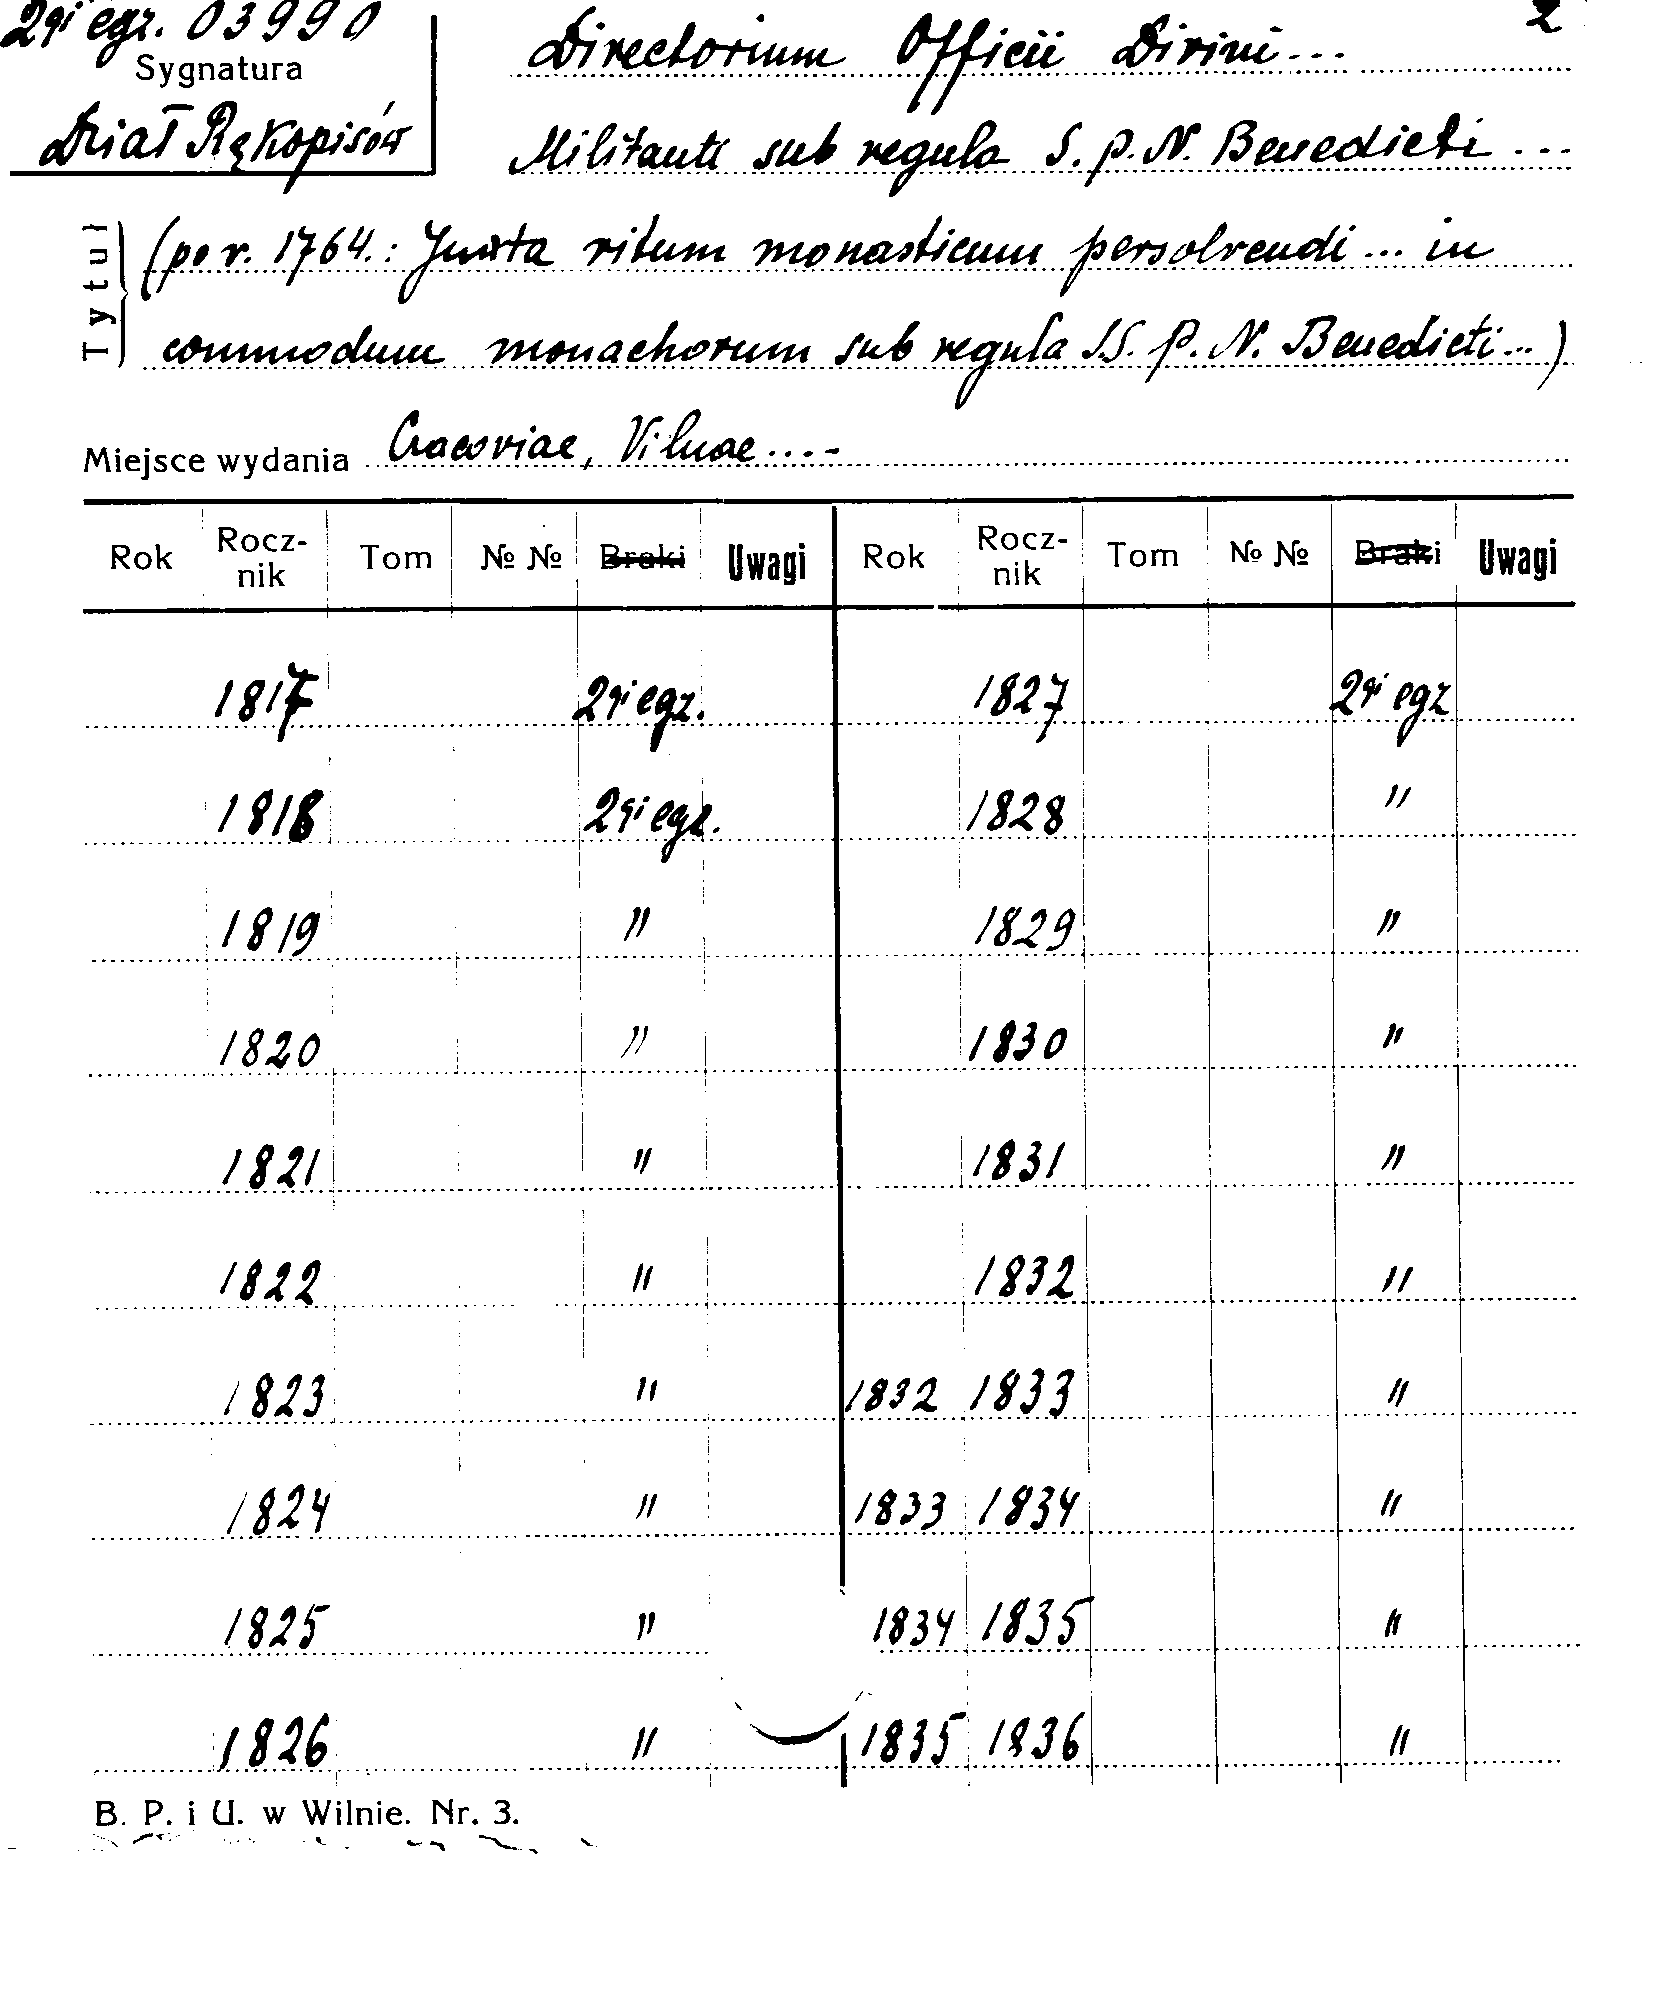 2gi egz. 03990
2
Sygnatura
Dział Rękopisów
Directorium Officii Divini...
Militanti sub regula S. P. N. Benedicti ...
Tytuł
(po r. 1764.: Juxta ritum monasticum persolvendi ... in
commodum monachorum sub regula SS. P. N. Benedicti ... )
Miejsce wydania Cracoviae, Vilnae ....
Rok Rocz-nik Tom № № Braki Uwagi Rok Rocz-nik Tom № № Braki Uwagi
1817 2gi egz. 1827 2gi egz
1818 2gi egz. 1828 "
1819 " 1829 "
1820 " 1830 "
1821 " 1831 "
1822 " 1832 "
1823 " 1832 1833 "
1824 " 1833 1834 "
1825 " 1834 1835 "
1826 " 1835 1836 "
B. P. i U. w Wilnie. Nr. 3.